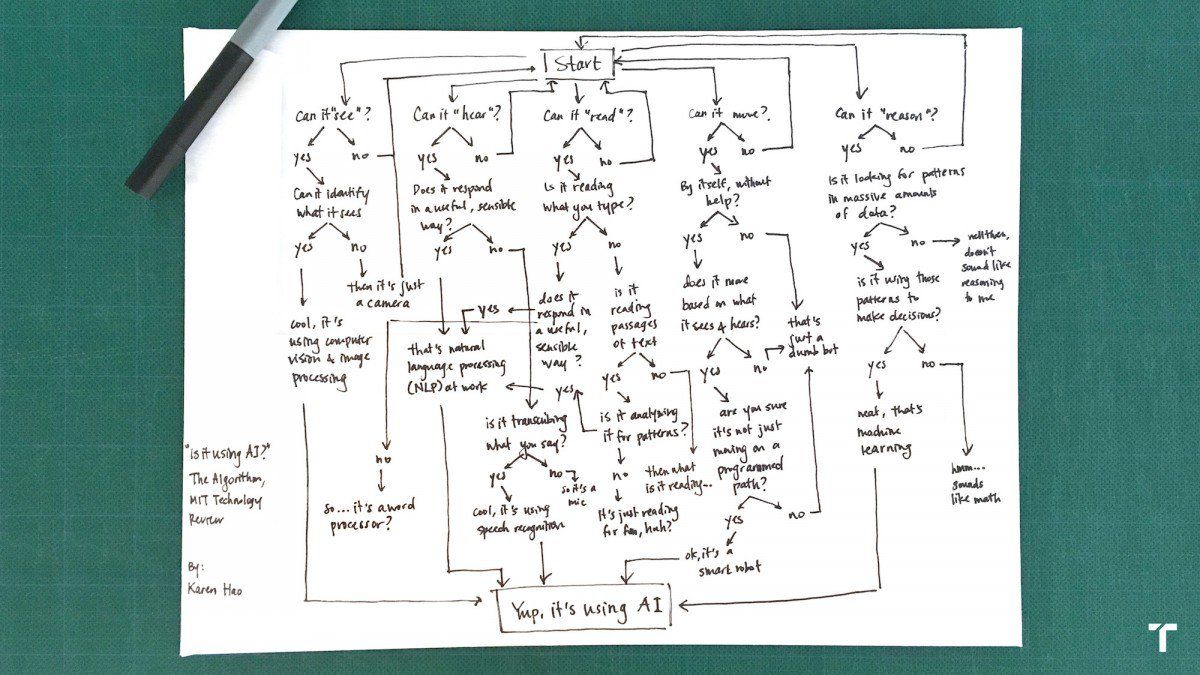 Start
Can it "see"?
yes
no
Can it identify
what it sees
yes
no
then it's just
a camera
cool, it's
using computer
vision & image
processing
Can it "hear"?
yes
no
Does it respond
in a useful, sensible
way?
yes
no
that's natural
language processing
(NLP) at work
is it transcribing
what you say?
yes
no
so it's a
mic
cool, it's using
speech recognition
Can it "read"?
yes
no
Is it reading
what you type?
yes
no
does it
respond in
a useful,
sensible
way?
yes
no
so... it's a word
processor?
is it
reading
passages
of text
yes
no
is it analyzing
it for patterns?
yes
no
It's just reading
for fun, huh?
then what
is it reading...
Can it move?
yes
no
By itself, without
help?
yes
no
does it move
based on what
it sees & hears?
yes
no
that's
just a
dumb bot
are you sure
it's not just
moving on a
programmed
path?
yes
no
ok, it's a
smart robot
Can it "reason"?
yes
no
Is it looking for patterns
in massive amounts
of data?
yes
no
well then,
doesn't
sound like
reasoning
to me
is it using those
patterns to
make decisions?
yes
no
neat, that's
machine
learning
hmm...
sounds
like math
Yup, it's using AI
"is it using AI?"
The Algorithm,
MIT Technology
Review
By:
Karen Hao
T